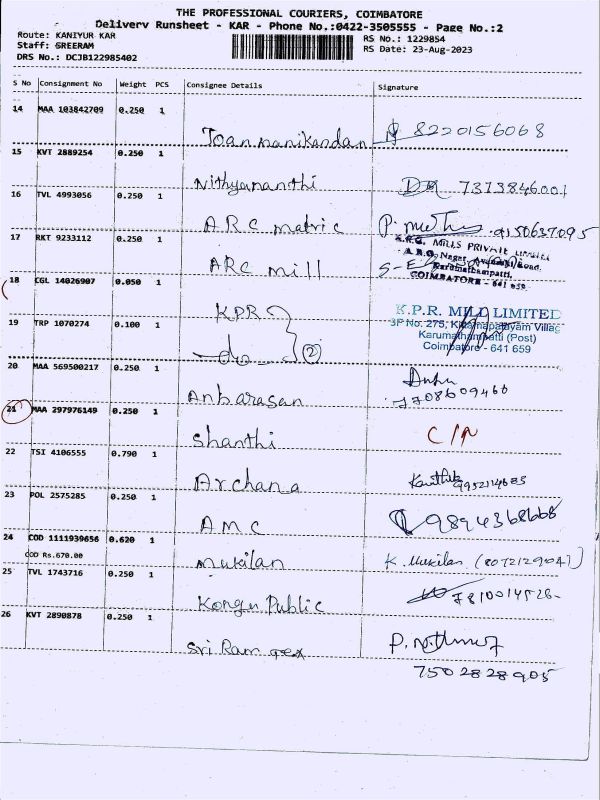 THE PROFESSIONAL COURIERS, COIMBATORE
Delivery Runsheet - KAR - Phone No.:0422-3505555 - Page No.:2
Route: KANIYUR KAR
RS No.: 1229854
Staff: SREERAM
RS Date: 23-Aug-2023
DRS No.: DCJB122985402
S No Consignment No Weight PCS Consignee Details Signature
14 MAA 103842709 0.250 1
Toan manikandan 8220156068
15 KVT 2889254 0.250 1
Nithyananthi 7373846001
16 TVL 4993056 0.250 1
ARC matric 9150637095
17 RKT 9233112 0.250 1
A.R.G. MILLS PRIVATE LIMITED
ARC mill
Karumathampatti,
COIMBATORE - 641 659
18 CGL 14026907 0.050 1
KPR
K.P.R. MILL LIMITED
19 TRP 1070274 0.100 1
SP No. 275, Kittampalayam Villag
Karumathampatti (Post)
Coimbatore - 641 659
-do- 2
20 MAA 569500217 0.250 1
Anbarasan 7708609460
21 MAA 297976149 0.250 1
Shanthi C/N
22 TSI 4106555 0.790 1
Archana Karthik
23 POL 2575285 0.250 1
AMC 9894368668
24 COD 1111939656 0.620 1
COD Rs.670.00
Mukilan K. Mukilan (8072129047)
25 TVL 1743716 0.250 1
Kongu Public 7810014526
26 KVT 2890878 0.250 1
Sri Ram
7502828905